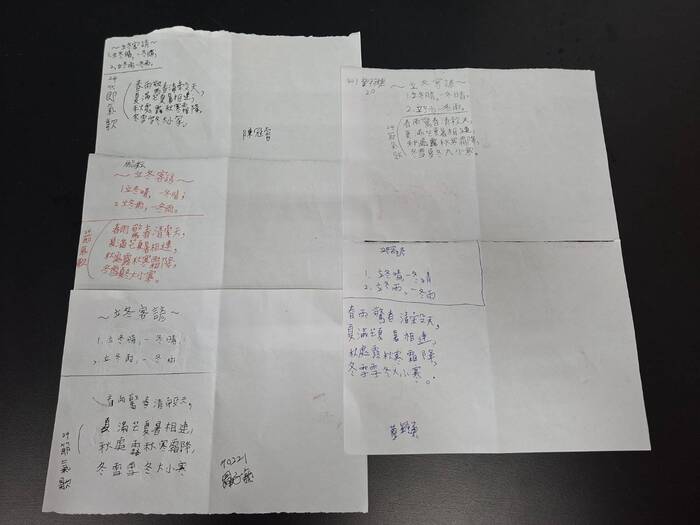 ～立冬客請～
1.立冬晴,一冬晴,
2.立冬雨,一冬雨,
24節氣歌
春雨驚春清穀天,
夏滿芒夏暑相連,
秋處露秋寒霜降,
冬雪雪冬大小寒。
～立冬客請～
1.立冬晴,一冬晴,
2.立冬雨,一冬雨。
24節氣歌
春雨驚春清穀天,
夏滿芒夏暑相連,
秋處露秋寒霜降,
冬雪雪冬大小寒。
～立冬客請～
1.立冬晴,一冬晴
2.立冬雨,一冬雨
24節氣歌
春雨驚春清穀天,
夏滿芒夏暑相連,
秋處露秋寒霜降,
冬雪雪冬大小寒
90221
20
～立冬客請～
1.立冬晴,一冬晴,
2.立冬雨,一冬雨。
24節氣歌
春雨驚春清穀天,
夏滿芒夏暑相連,
秋處露秋寒霜降,
冬雪雪冬大小寒。
1.立冬晴,一冬晴
2.立冬雨,一冬雨
春雨驚春清穀天,
夏滿芒夏暑相連,
秋處露秋寒霜降,
冬雪雪冬大小寒。